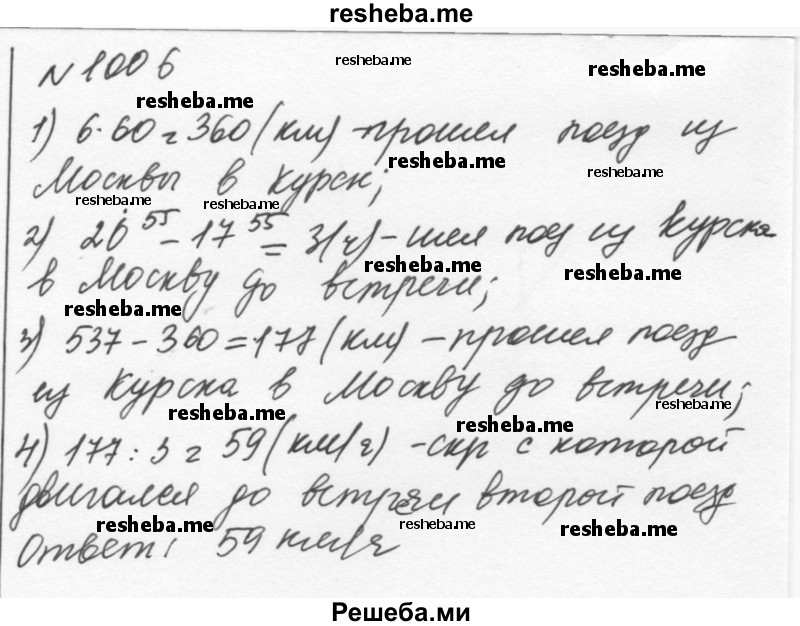 resheba.me
N 1006
resheba.me
resheba.me
resheba.me
1) 6·60=360(км)-прошел поезд из
resheba.me
resheba.me
Москвы в Курск;
resheba.me
resheba.me
2) 20 55 - 17 55 = 3(ч) - шел поезд из Курска
resheba.me
resheba.me
в Москву до встречи;
resheba.me
3) 537 - 360 = 177 (км) - прошел поезд
из Курска в Москву до встречи;
resheba.me
resheba.me
resheba.me
4) 177 : 3 = 59 (км/ч) - скр с которой
двигался до встречи второй поезд
resheba.me
resheba.me
resheba.me
Ответ: 59 км/ч
Решеба.ми